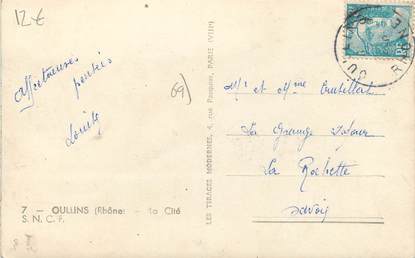 12€
affectueuses
pensées
69)
Mr et Mme
La Grange
La Rochette
Savoie
LES TIRAGES MODERNES, 4, rue Pasquier, PARIS (VIIIe)
7. — OULLINS (Rhône) — La Cité
S. N. C. F.